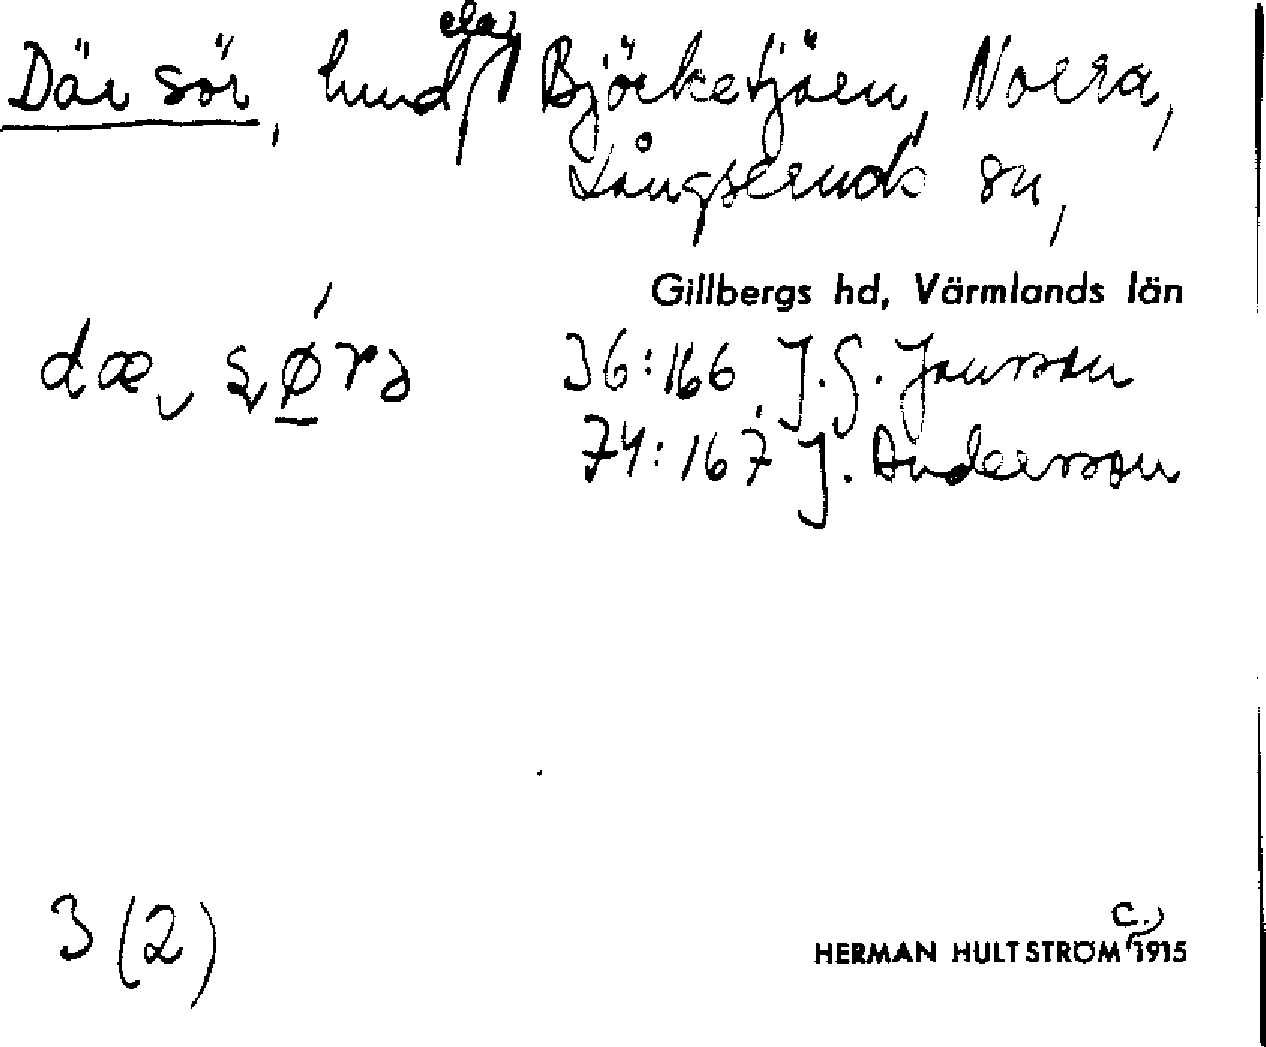 Där sör, hund elr Björketjärn, Norra,
Långseruds sn,
Gillbergs hd, Värmlands län
dæ sø̱rə
36:166 J. G. Jansson
74:167 J. Andersson
3 (2)
HERMAN HULTSTRÖM c. 1915